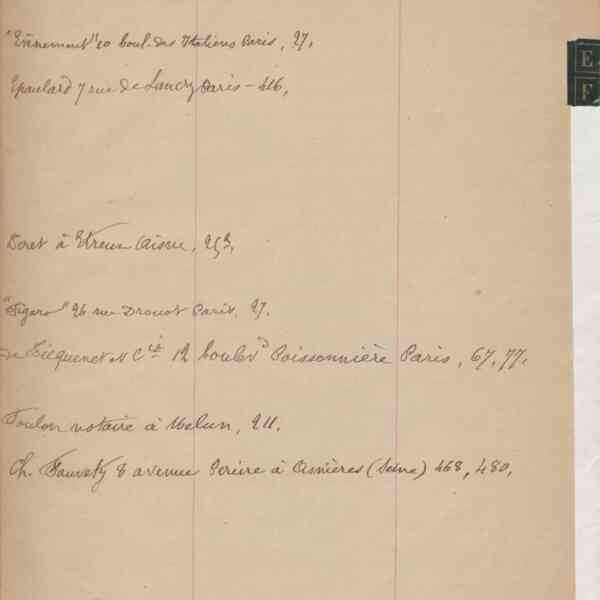 "Evènement" 10 boul. des Italiens Paris, 27,
Epaulard 7 rue de Lancry Paris — 416,
Doret à Etreux Aisne, 253,
"Figaro" 26 rue Drouot Paris, 27.
de Ficquenet et Cie 12 boulevd Poissonnière Paris, 67, 77,
Foulon notaire à Melun, 211.
Ch. Fauvety 8 avenue Pereire à Asnières (Seine) 468, 480,
E
F